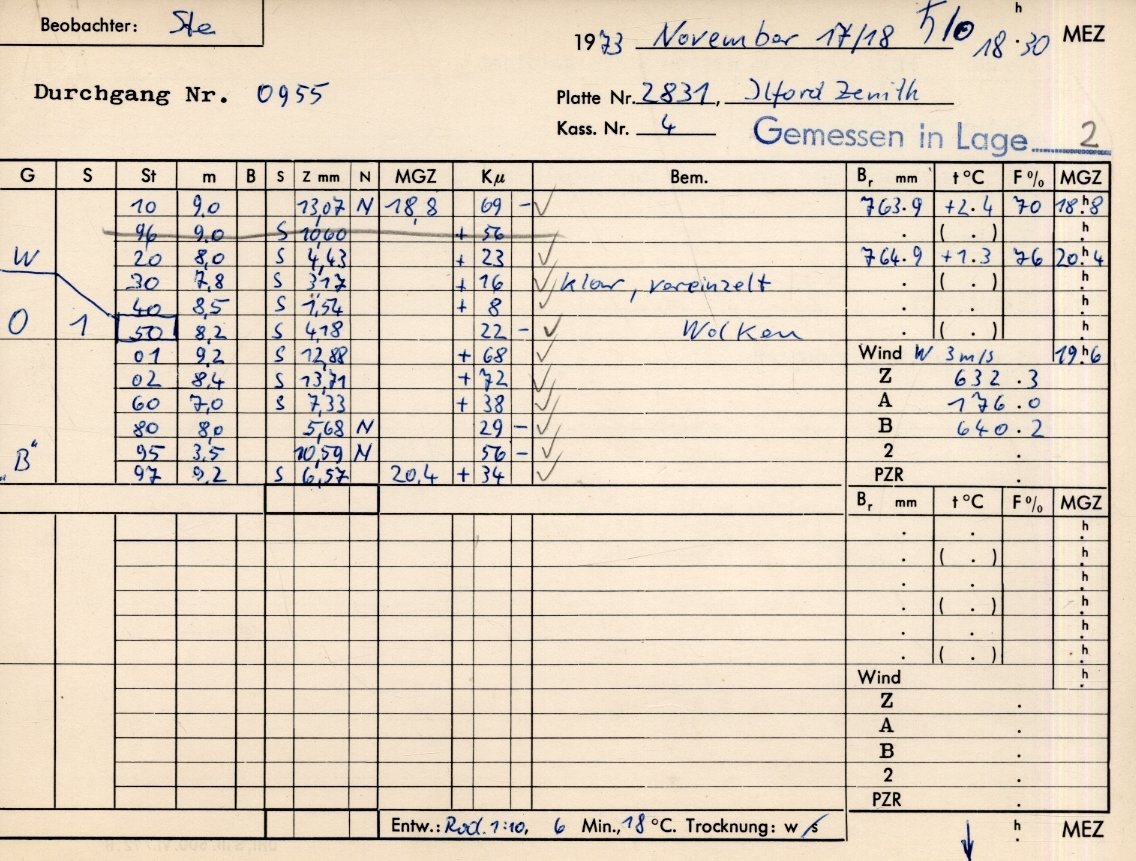 Beobachter: Ste
1973 November 17/18 ♄/☉ 18 h . 30 MEZ
Durchgang Nr. 0955
Platte Nr. 2831, Ilford Zenith
Kass. Nr. 4 Gemessen in Lage 2
G S St m B S Z mm N MGZ Kμ Bem. Br mm t °C F % MGZ
10 9,0 13,07 N 18,8 69 - ✓ 763.9 +2.4 70 18 h 8
96 9,0 S 10,60 + 56 . ( . ) h
W 20 8,0 S 4,43 + 23 ✓ 764.9 +1.3 76 20 h 4
30 7,8 S 3,17 + 16 ✓ klar, vereinzelt . ( . ) h
40 8,5 S 1,54 + 8 ✓ . . h
O 1 50 8,2 S 4,18 22 - ✓ Wolken . ( . ) h
01 9,2 S 12,88 + 68 ✓ Wind W 3 m/s 19 h 6
02 8,4 S 13,71 + 72 ✓ Z 632.3
60 7,0 S 7,33 + 38 ✓ A 176.0
80 8,0 5,68 N 29 - ✓ B 640.2
„B“ 95 3,5 10,59 N 56 - ✓ 2 .
97 9,2 S 6,57 20,4 + 34 ✓ PZR .
Br mm t °C F % MGZ
. . h
. ( . ) h
. . h
. ( . ) h
. . h
. ( . ) h
Wind h
Z .
A .
B .
2 .
PZR .
Entw.: Rod. 1:10, 6 Min., 18 °C. Trocknung: w/s ↓ h . MEZ